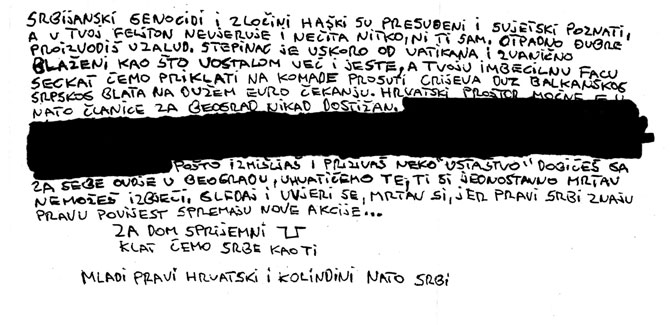 SRBIJANSKI GENOCIDI I ZLOČINI HAŠKI SU PRESUĐENI I SVJETSKI POZNATI,
A U TVOJ FELJTON NEVJERUJE I NEČITA NITKO, NI TI SAM. OTPADNO ĐUBRE
PROIZVODIŠ UZALUD. STEPINAC JE USKORO OD VATIKANA I ZVANIČNO
BLAŽENI KAO ŠTO UOSTALOM VEĆ I JESTE, A TVOJU IMBECILNU FACU
SECKAT ĆEMO PRIKLATI NA KOMADE PROSUTI CRIJEVA DUŽ BALKANSKOG
SRPSKOG BLATA NA DUŽEM EURO ČEKANJU. HRVATSKI PROSTOR MOĆNE EU I
NATO ČLANICE ZA BEOGRAD NIKAD DOSTIŽAN.
POŠTO IZMIŠLJAŠ I PRIZIVAŠ NEKO "USTAŠTVO" DOBIĆEŠ GA
ZA SEBE OVDJE U BEOGRADU, UHVATIĆEMO TE, TI SI JEDNOSTAVNO MRTAV
NEMOŽEŠ IZBJEĆI. GLEDAJ I UVJERI SE, MRTAV SI, JER PRAVI SRBI ZNAJU
PRAVU POVIJEST SPREMAJU NOVE AKCIJE...
ZA DOM SPRIJEMNI
KLAT ĆEMO SRBE KAO TI
MLADI PRAVI HRVATSKI I KOLINDINI NATO SRBI